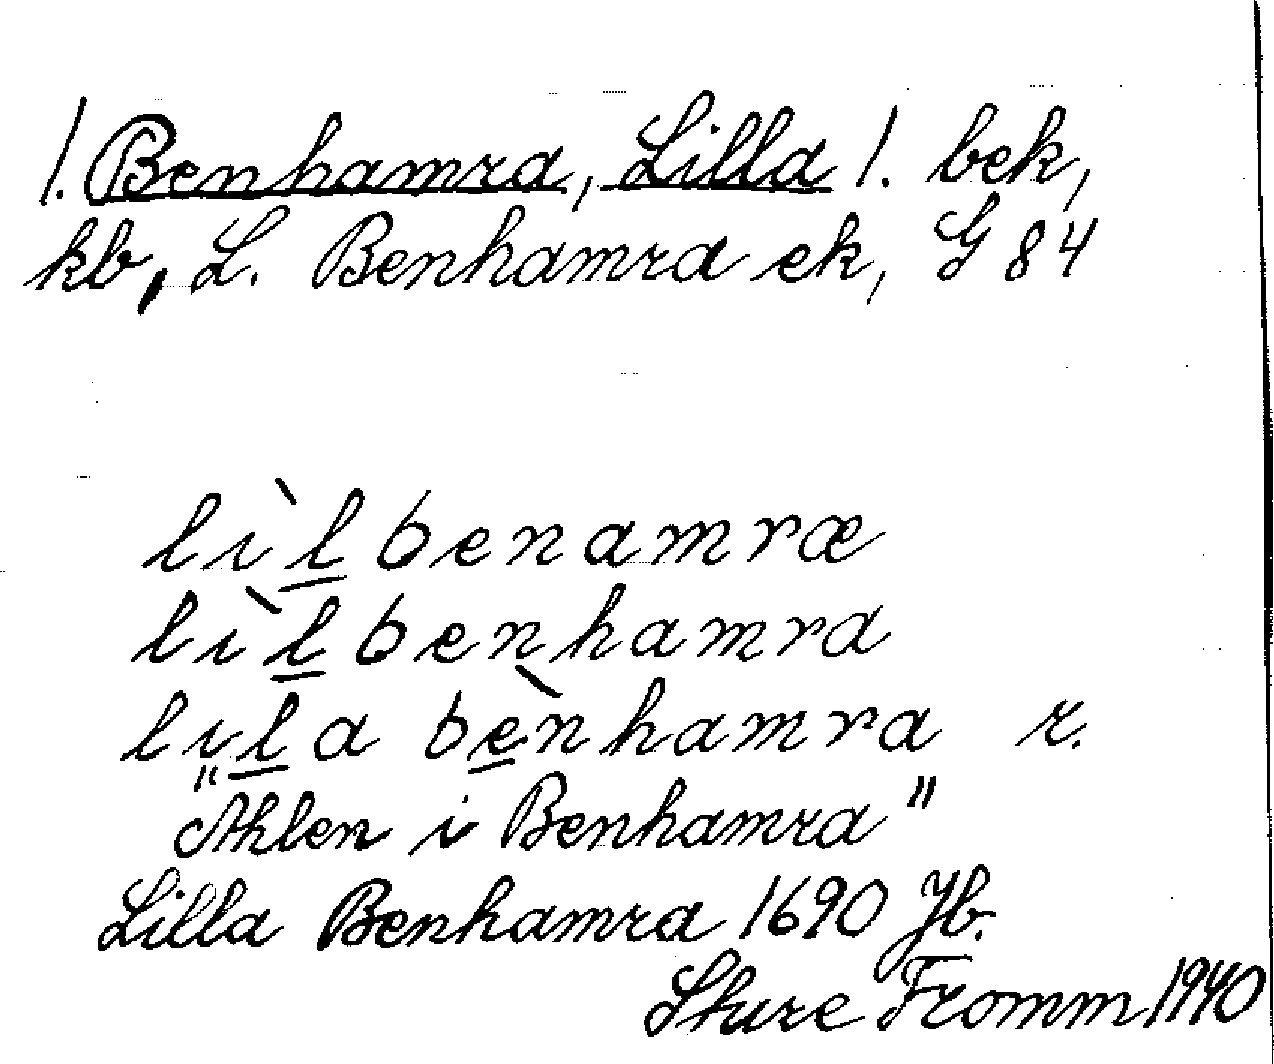 1. Benhamra, Lilla 1. bek,
kb, L. Benhamra ek, G 84
lìl̲benamræ
lìl̲benhamra
lil̲a bè̲nhamra r.
"Ahlen i Benhamra"
Lilla Benhamra 1690 Jb.
Sture Fromm 1940